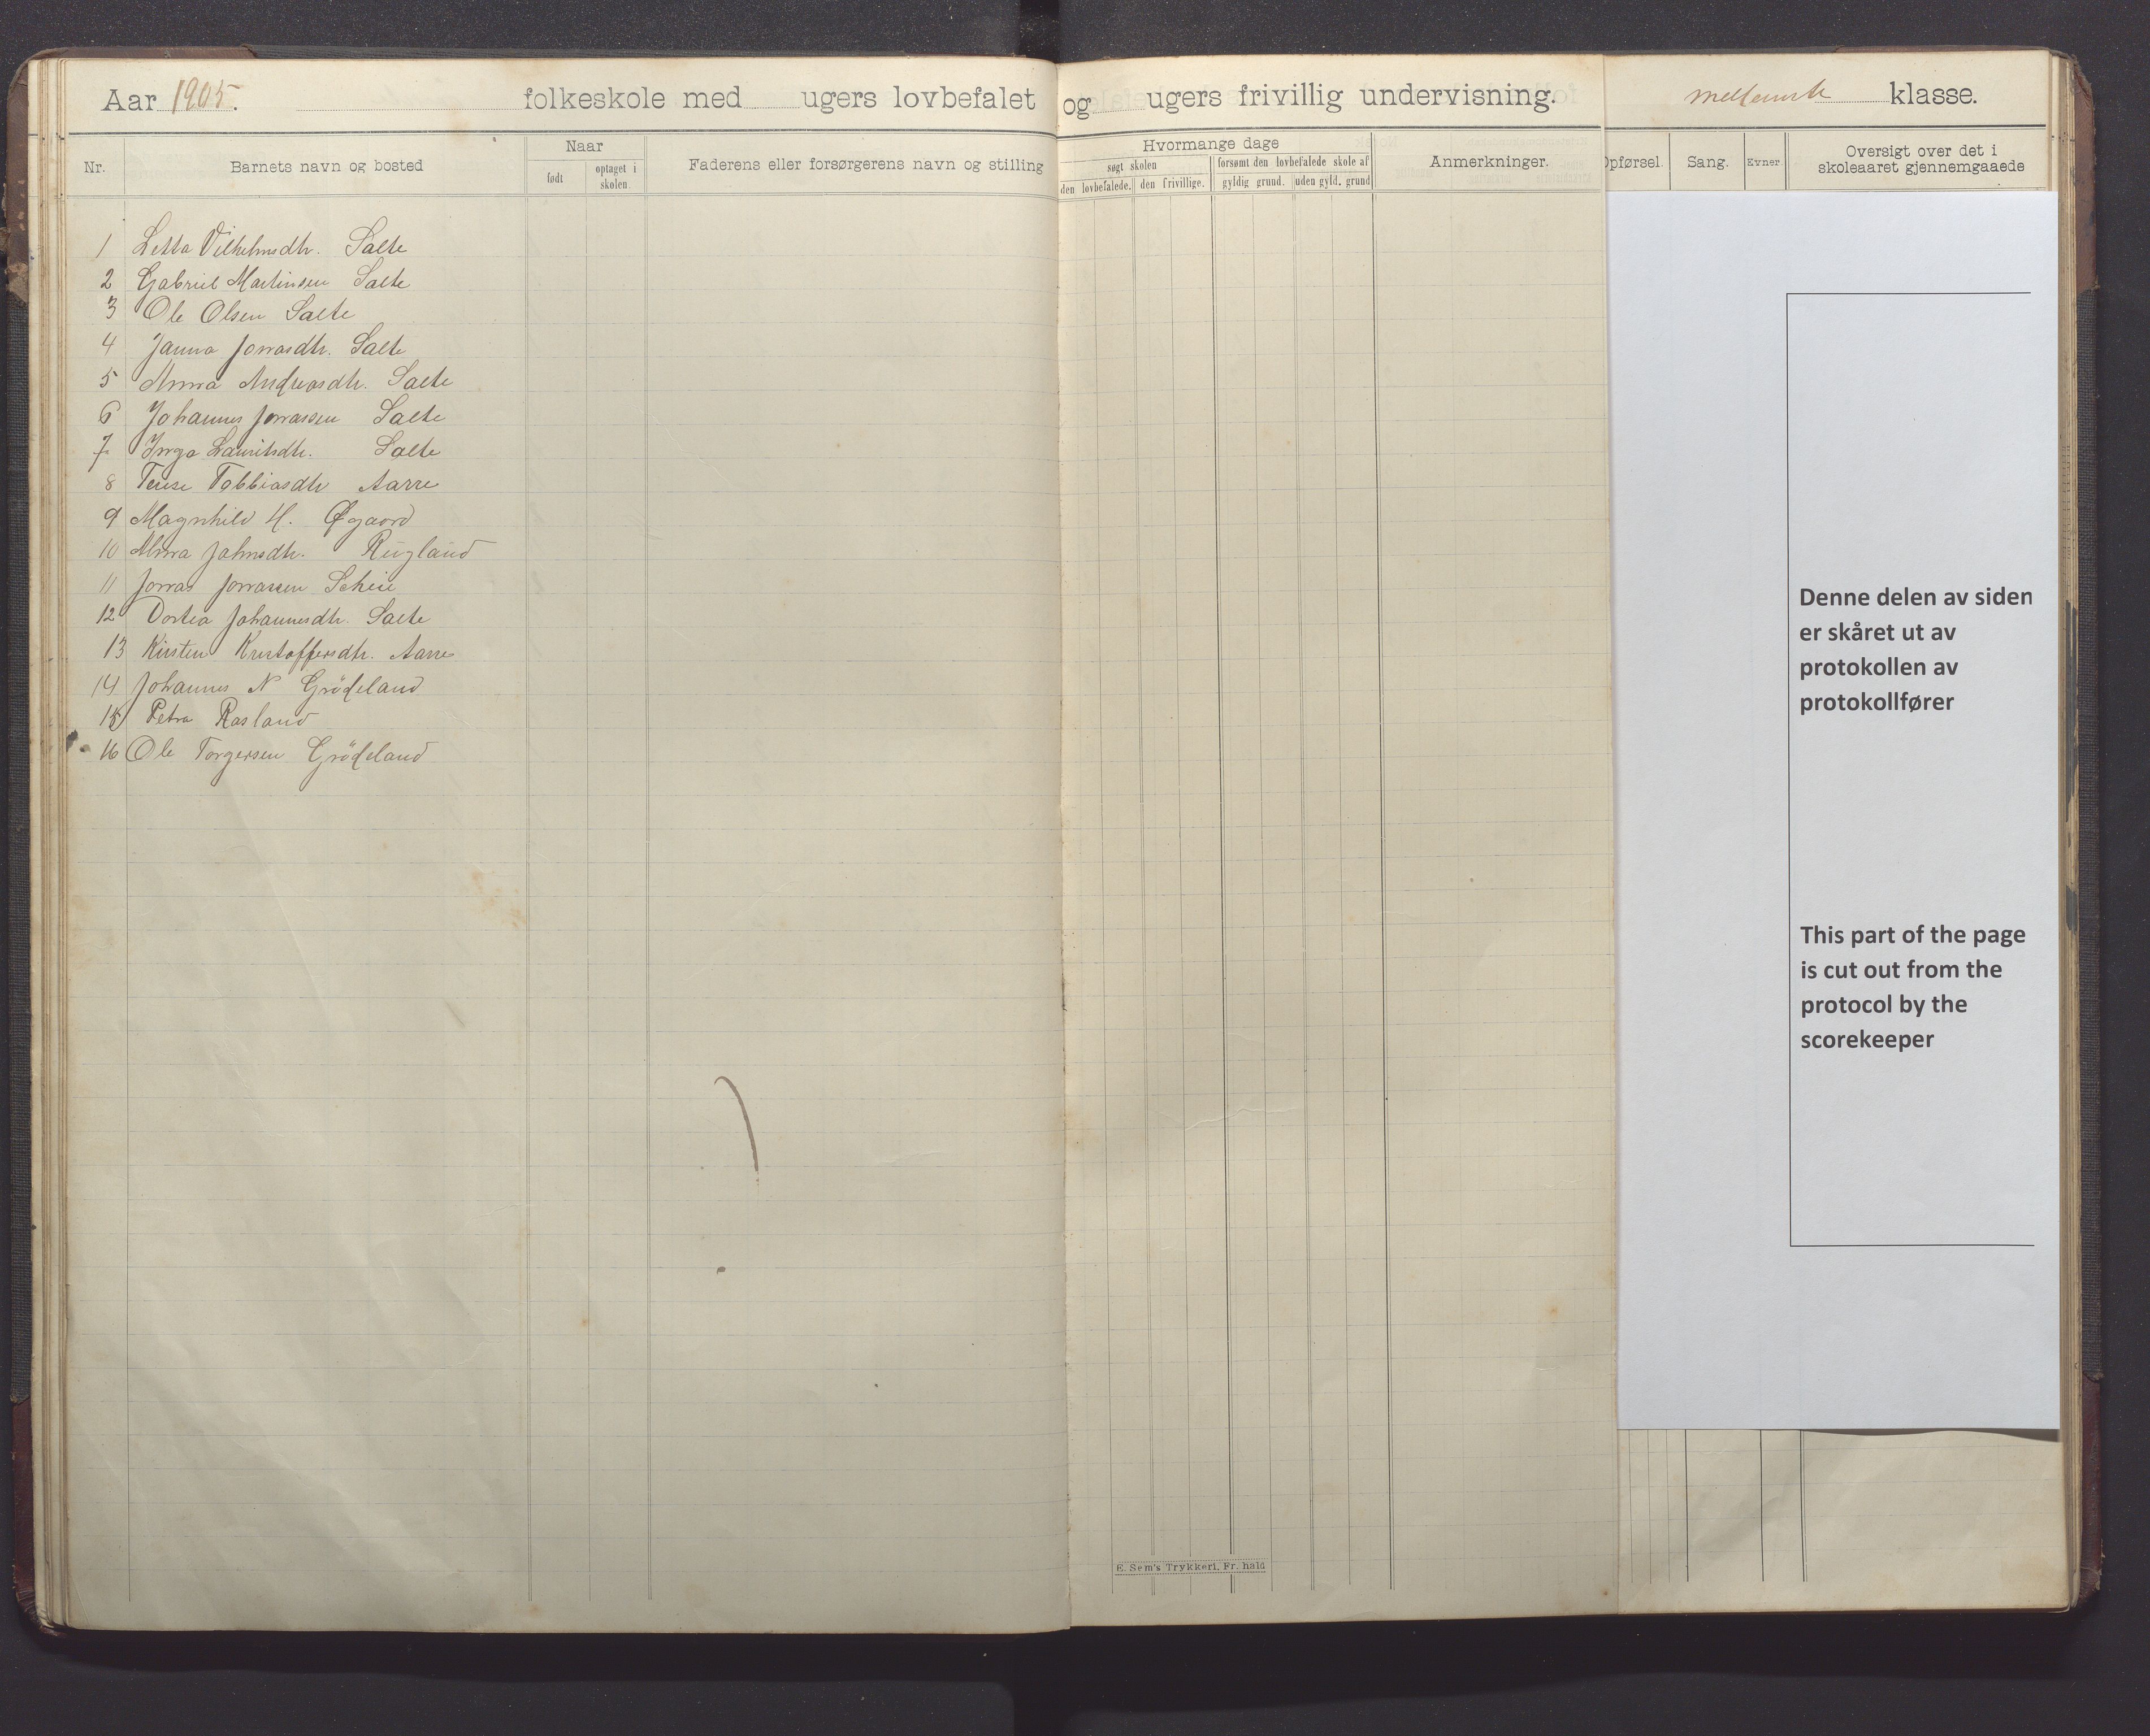 Aar 1905. folkeskole med ugers lovbefalet og ugers frivillig undervisning. mellemste klasse.
Nr. Barnets navn og bosted Naar født optaget i skolen. Faderens eller forsørgerens navn og stilling
Hvormange dage
søgt skolen forsømt den lovbefalede skole af
den lovbefalede. den frivillige. gyldig grund. uden gyld. grund
Anmerkninger.
Opførsel. Sang. Evner
Oversigt over det i
skoleaaret gjennemgaaede
1 Letta Vilhelmsdtr. Salte
2 Gabriel Martinsen Salte
3 Ole Olsen Salte
4 Janna Jonasdtr. Salte
5 Anna Andreasdtr. Salte
6 Johannes Jonassen Salte
7 Inga Lauritsdtr. Salte
8 Terese Tobbiasdtr Aarre
9 Magnhild H. Øgaard
10 Anna Johnsdtr. Rugland
11 Jonas Jonassen Scheie
12 Dortea Johannesdtr. Salte
13 Kirsten Kristoffersdtr. Aarre
14 Johannes N Grödeland
15 Petra Rosland
16 Ole Torgersen Grödeland
Denne delen av siden
er skåret ut av
protokollen av
protokollfører
This part of the page
is cut out from the
protocol by the
scorekeeper
E. Sem's Trykkeri, Fr. hald